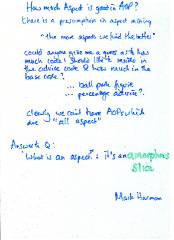 How much Aspect is good in AOP?
there is a presumption in aspect mining
"the more aspects we find the better"
could anyone give me a guess as to how
much code I should like to reside in
the advice code & how much in the
base code?
... ball park figure
... percentage advice?.
clearly we can't have AOPs which
are "all aspect"
Answer to Q:
'What is an aspect?': it's an amorphous
slice
Mark Harman